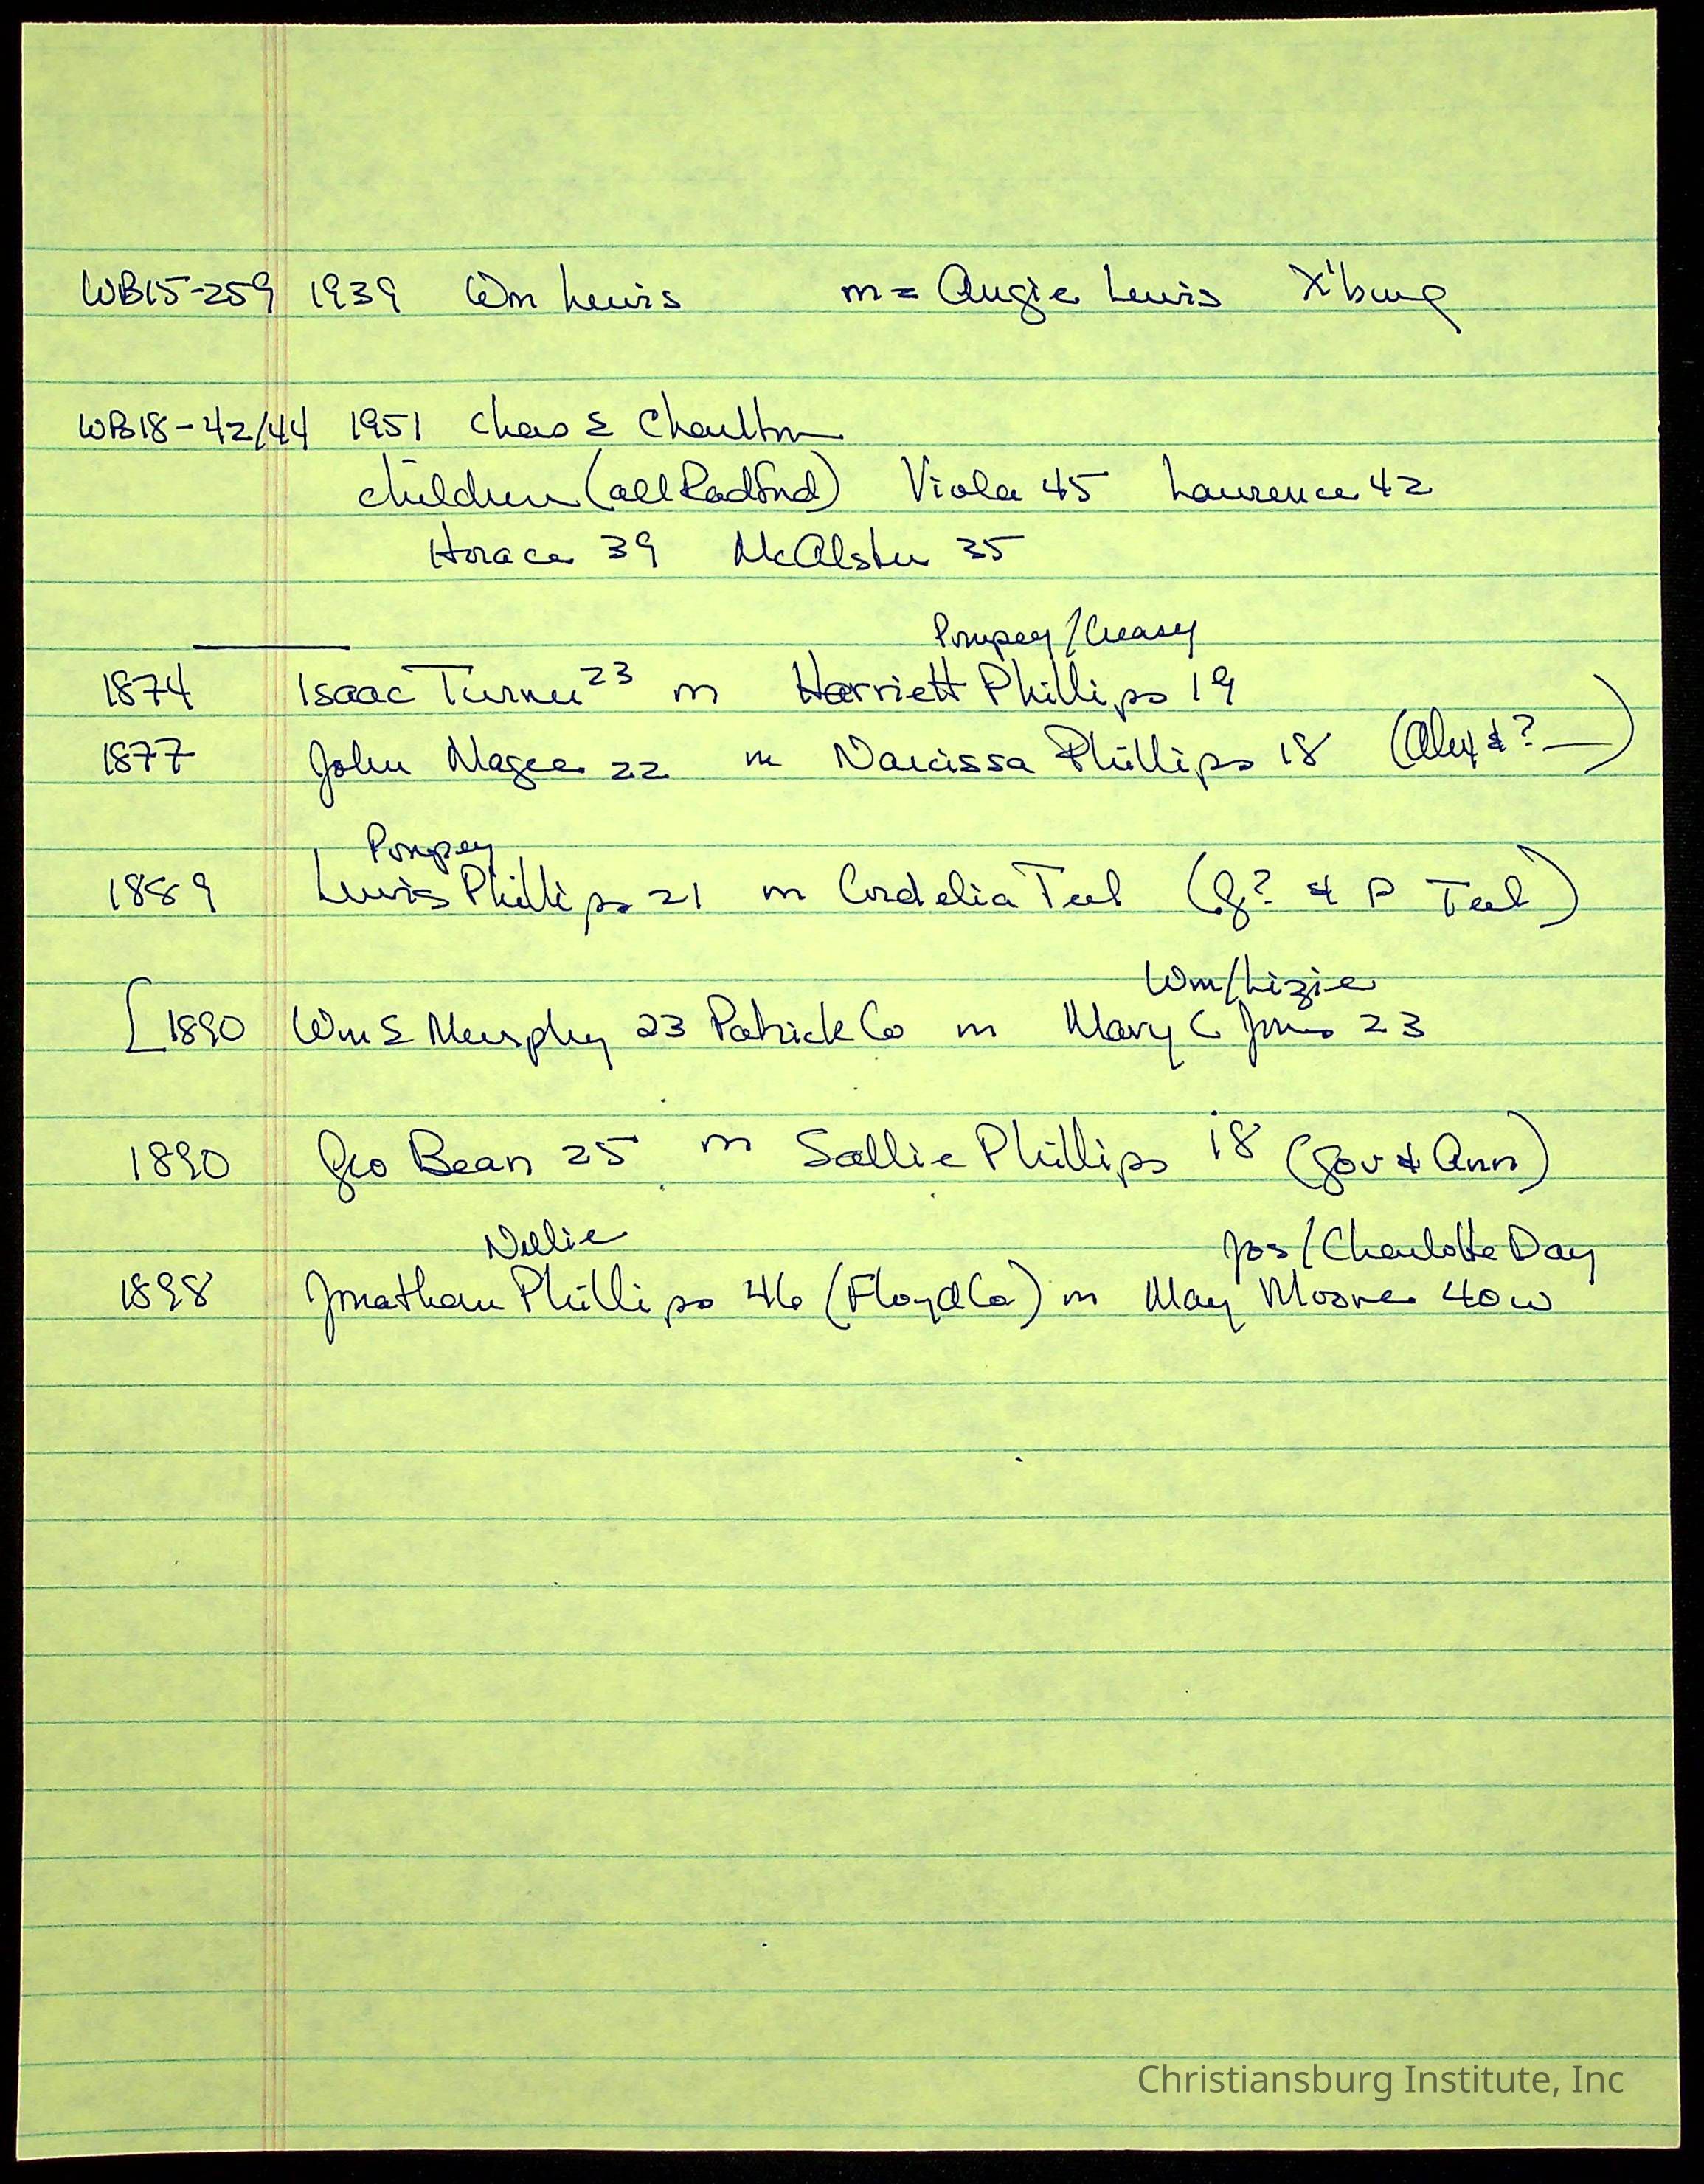 WB15-259 1939 Wm Lewis m= Angie Lewis X'burg
WB18-42/44 1951 Chas E Charlton
children (all Radford) Viola 45 Laurence 42
Horace 39 McAlster 35
Pompey/Creasy
1874 Isaac Turner 23 m Harriett Phillips 19
1877 John Magee 22 m Narcissa Phillips 18 (Alex & ? —)
Pompey
1889 Lewis Phillips 21 m Cordelia Teel (G? & P Teel)
Wm/Lizzie
[1890 Wm E Murphy 23 Patrick Co m Mary C Jones 23
1890 Geo Bean 25 m Sallie Phillips 18 (Gov & Ann)
Nellie Jos/Charlotte Day
1898 Jonathan Phillips 46 (Floyd Co) m May Moore 40 w
Christiansburg Institute, Inc